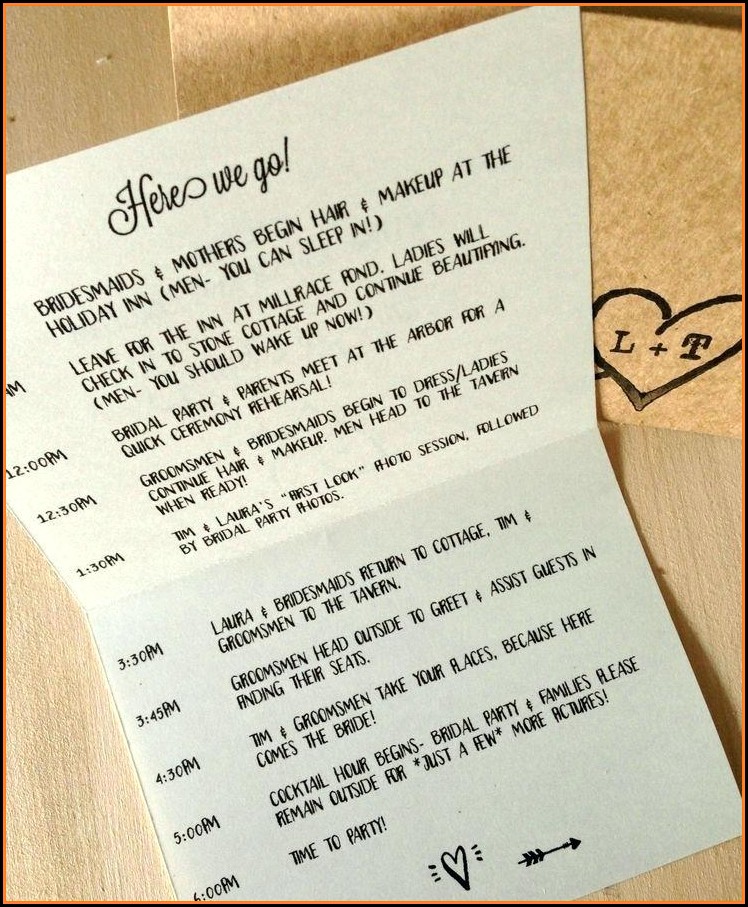 Here we go!
BRIDESMAIDS & MOTHERS BEGIN HAIR & MAKEUP AT THE
HOLIDAY INN (MEN- YOU CAN SLEEP IN!)
LEAVE FOR THE INN AT MILLRACE POND. LADIES WILL
CHECK IN TO STONE COTTAGE AND CONTINUE BEAUTIFYING.
(MEN- YOU SHOULD WAKE UP NOW!)
12:00PM
BRIDAL PARTY & PARENTS MEET AT THE ARBOR FOR A
QUICK CEREMONY REHEARSAL!
12:30PM
GROOMSMEN & BRIDESMAIDS BEGIN TO DRESS/LADIES
CONTINUE HAIR & MAKEUP. MEN HEAD TO THE TAVERN
WHEN READY!
1:30PM
TIM & LAURA'S "FIRST LOOK" PHOTO SESSION, FOLLOWED
BY BRIDAL PARTY PHOTOS.
3:30PM
LAURA & BRIDESMAIDS RETURN TO COTTAGE, TIM &
GROOMSMEN TO THE TAVERN.
3:45PM
GROOMSMEN HEAD OUTSIDE TO GREET & ASSIST GUESTS IN
FINDING THEIR SEATS.
4:30PM
TIM & GROOMSMEN TAKE YOUR PLACES, BECAUSE HERE
COMES THE BRIDE!
5:00PM
COCKTAIL HOUR BEGINS- BRIDAL PARTY & FAMILIES PLEASE
REMAIN OUTSIDE FOR *JUST A FEW* MORE PICTURES!
6:00PM
TIME TO PARTY!
L + T